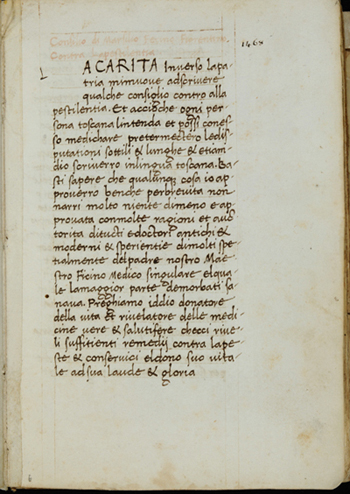 1481
L
A CARITA Inverso lapa
tria minuove adscrivere
qualche consiglio contro alla
pestilentia. Et accioche ogni per
sona toscana lintenda et possi cones
so medichare pretermecterò ledis
putationi sottili & lunghe & etiam
dio scriverro inlingua toscana. Ba
sti sapere che qualunque cosa io ap
proverrò benche perbrevita non
narri molto niente dimeno e ap
provata conmolte ragioni et auc
torita ditucti edoctori antichi &
moderni & sperientie dimolti spe
tialmente delpadre nostro Mae
stro Ficino Medico singulare elqua
le lamaggior parte demorbati sa
nava. Preghiamo iddio donatore
della vita et rivelatore delle medi
cine vere & salutifere checci rive
li suffitienti remedij contra lape
ste & conservici eldono suo vita
le ad sua laude & gloria